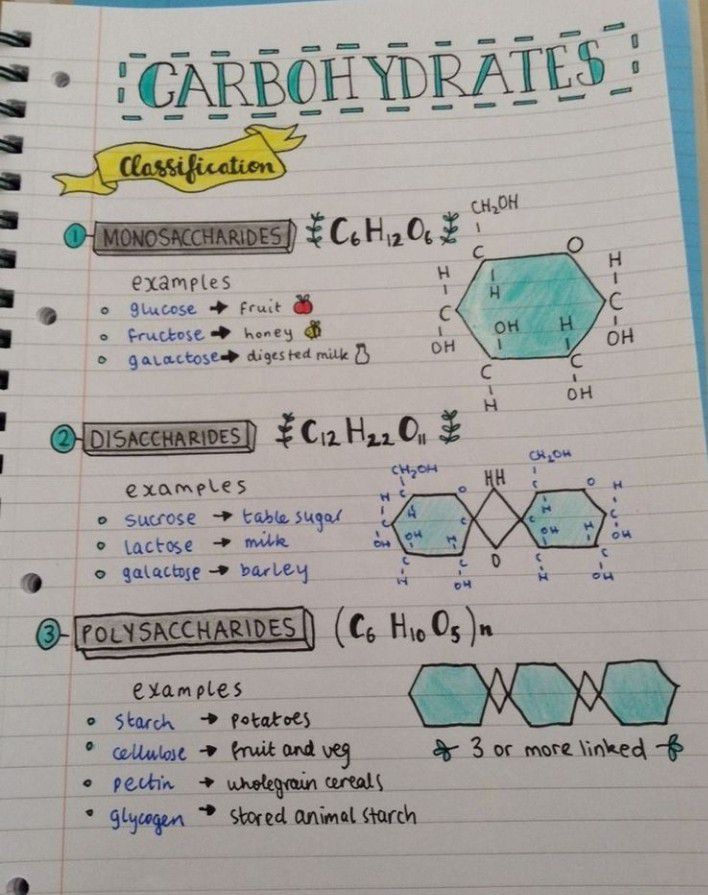 CARBOHYDRATES
Classification
1 MONOSACCHARIDES C6H12O6
examples
glucose → fruit
fructose → honey
galactose → digested milk
CH2OH
C O
H H H
C C
OH OH H OH
C C
H OH
2 DISACCHARIDES C12H22O11
examples
sucrose → table sugar
lactose → milk
galactose → barley
CH2OH HH CH2OH
H C O C O H
C H C H C
OH OH H O OH H OH
C C C C
H OH H OH
3 POLYSACCHARIDES (C6H10O5)n
examples
starch → potatoes
cellulose → fruit and veg
pectin → wholegrain cereals
glycogen → stored animal starch
3 or more linked